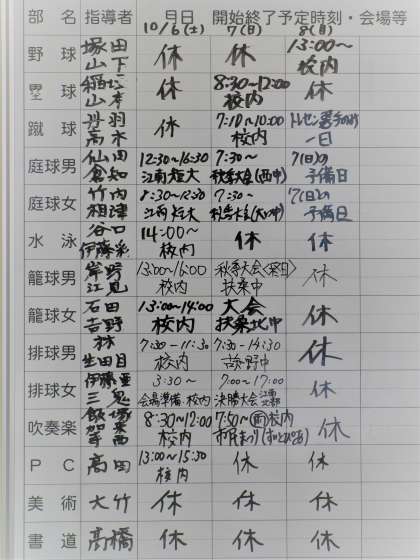 部 名 指導者 月日 開始終了予定時刻・会場等
10/6(土) 7(日) 8(月)
野 球 塚田 山下 休 休 13:00〜 校内
塁 球 山本 休 8:30~12:00 校内 休
蹴 球 丹羽 高木 休 7:10~10:00 校内 トレセン選手のみ 一日
庭球男 仙田 倉知 12:30~16:30 江南短大 7:30~ 秋季大会(西中) 7(日)の 予備日
庭球女 竹内 相津 8:30~12:30 江南短大 7:30~ 秋季大会 7(日)の 予備日
水 泳 谷口 伊藤彩 14:00~ 校内 休 休
籠球男 岸野 江見 13:00~16:00 校内 秋季大会 扶桑中 休
籠球女 石田 吉野 13:00~14:00 校内 大会 扶桑北中 休
排球男 林 生田目 7:30-11:30 校内 7:30-14:30 古知野中 休
排球女 伊藤 三鬼 3:30~ 会場準備・校内 7:00~17:00 決勝大会 江南北部 休
吹奏楽 飯場 8:30~12:00 校内 7:50~ 校内 休
P C 高田 13:00~15:30 校内 休 休
美 術 大竹 休 休 休
書 道 高橋 休 休 休